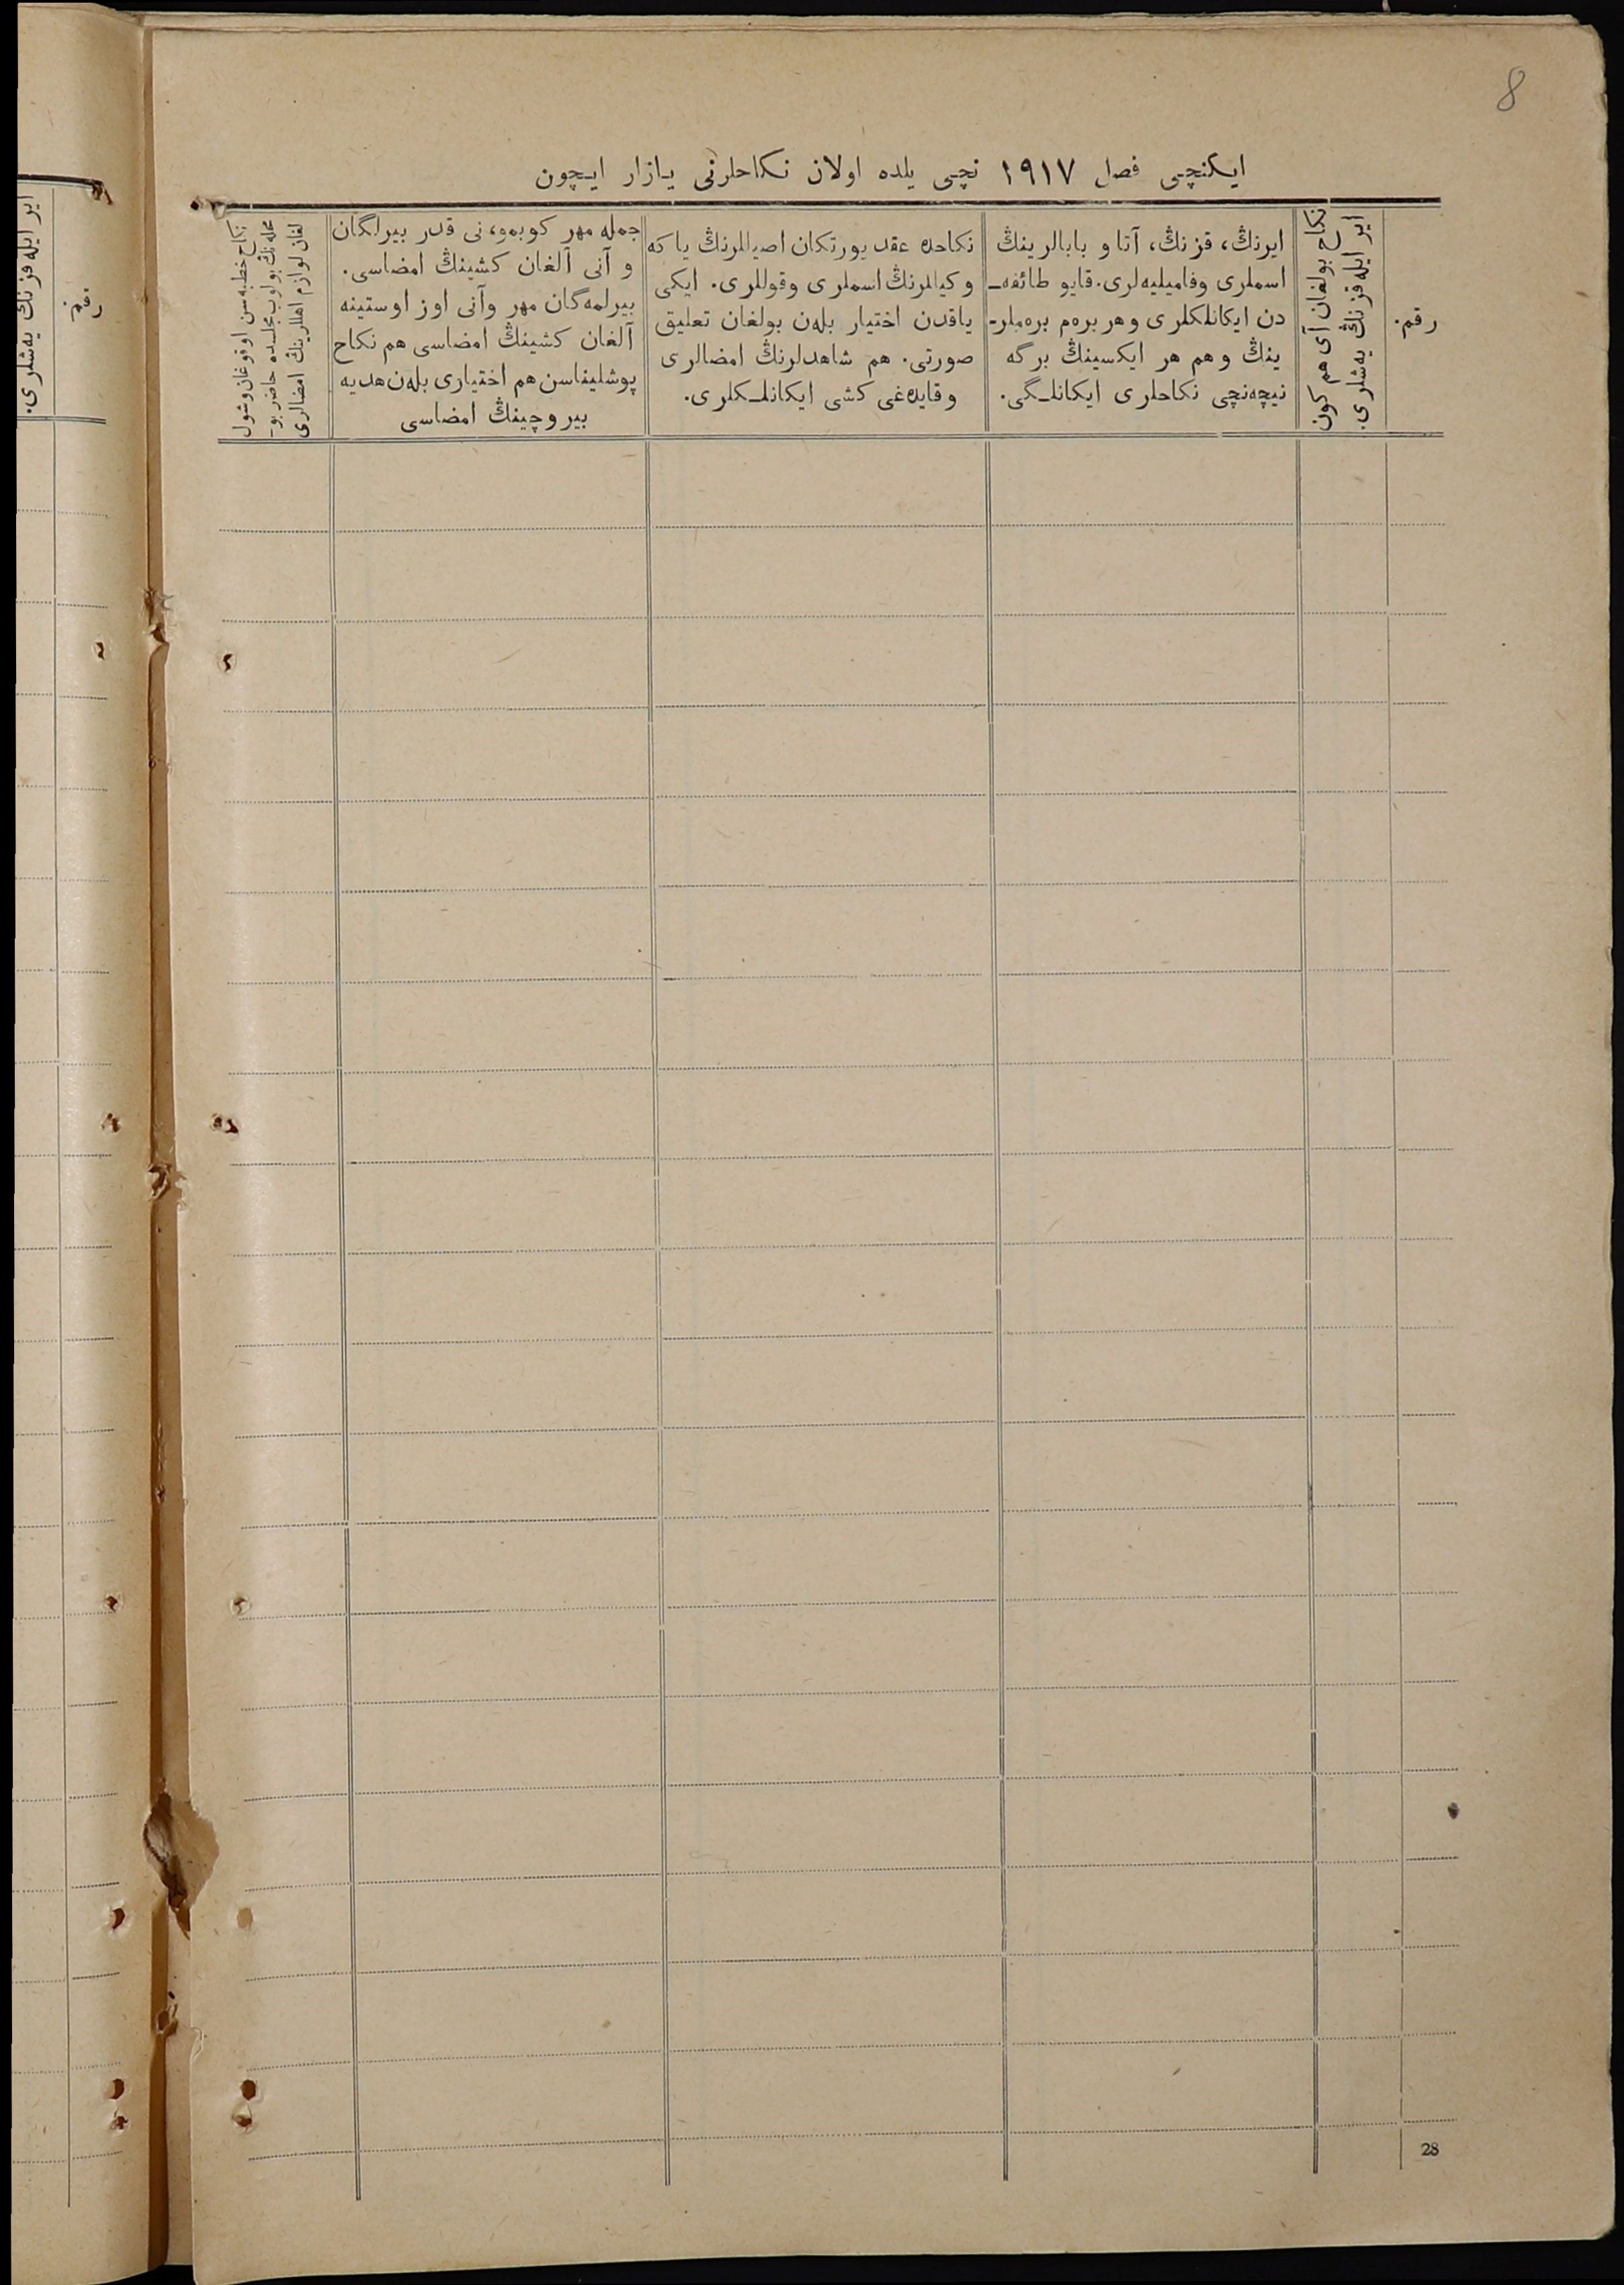 8
ایکنچی فصل ۱۹۱۷ نچی یلده اولان نکاحلرنی یازار ایچون
رقم.
نکاح بولغان آی هم کون
ایر ایله قزنڭ یه‌شلری.
ایرنڭ، قزنڭ، آتا و بابالرینڭ
اسملری وفامیلیه‌لری. قایو طائفه‌ـ
دن ایکانلکلری وهر بره‌م بره‌ملر-
ینڭ وهم هر ایکسینڭ برگه
نیچه‌نچی نکاحلری ایکانلـگی.
نکاحده عقد یورتکان اصیللرنڭ یا که
وکیللرنڭ اسملری وقوللری. ایکی
یاقدن اختیار بله‌ن بولغان تعلیق
صورتی. هم شاهدلرنڭ امضالری
وقایده‌غی کشی ایکانلـکلری.
جمله مهر کوبمو، نی قدر بیرلگان
و آنی آلغان کشینڭ امضاسی.
بیرلمه‌گان مهر وآنی اوز اوستینه
آلغان کشینڭ امضاسی هم نکاح
پوشلیناسن هم اختیاری بله‌ن هدیه
بیروچینڭ امضاسی
نکاح خطبه‌سن اوقوغان وشول
محله‌نڭ بولوب مجلسده حاضر بو-
لغان لوازم اهللرینڭ امضالری
رقم.
ایر ایله قزنڭ یه‌شلری.
28